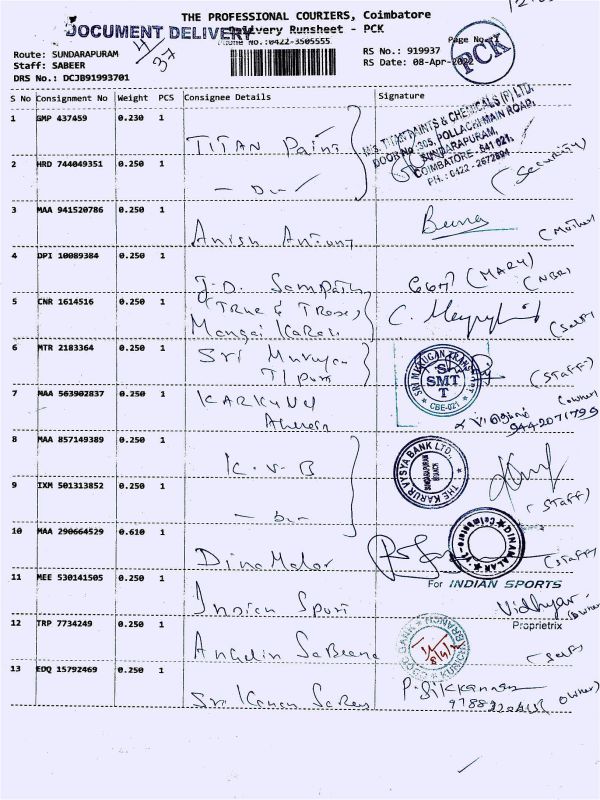 THE PROFESSIONAL COURIERS, Coimbatore
DOCUMENT DELIVERY
Delivery Runsheet - PCK
Phone No.:0422-3505555
Page No.:
PCK
Route: SUNDARAPURAM
Staff: SABEER
DRS No.: DCJB91993701
RS No.: 919937
RS Date: 08-Apr-2022
4/37
S No Consignment No Weight PCS Consignee Details Signature
1 GMP 437459 0.230 1 TITAN Paint
M/S. TITAN PAINTS & CHEMICALS (P) LTD.
DOOR No. 305, POLLACHI MAIN ROAD,
SUNDARAPURAM,
COIMBATORE - 641 021.
PH.: 0422-2672894
2 HRD 744049351 0.250 1 - Do - (Security)
3 MAA 941520786 0.250 1 Anish Antony (Mother)
4 DPI 10089384 0.250 1 J.D. Sampath மேரி (MARY) (NBR)
5 CNR 1614516 0.250 1 (True & Tross) Mangai Karai (self)
6 MTR 2183364 0.250 1 Sri Murugan Tlpuri (Staff)
SRI MURUGAN TRANSPORT
SMT
T
CBE-021
7 MAA 563902837 0.250 1 KARKUVEL (owner)
9442071799
8 MAA 857149389 0.250 1 K.V.B
THE KARUR VYSYA BANK LTD.
SUNDARAPURAM
BRANCH
9 IXM 501313852 0.250 1 - Do - (STAFF)
10 MAA 290664529 0.610 1 Dinamalar (Staff)
DINAMALAR
Coimbatore
11 MEE 530141505 0.250 1 Indian Sport
For INDIAN SPORTS
Vidhya (owner)
Proprietrix
12 TRP 7734249 0.250 1 Angelin Sabeena (self)
UCO BANK
KURICHI BRANCH
13 EDQ 15792469 0.250 1 Sri Kanan Sarees P. Sikkannan (owner)